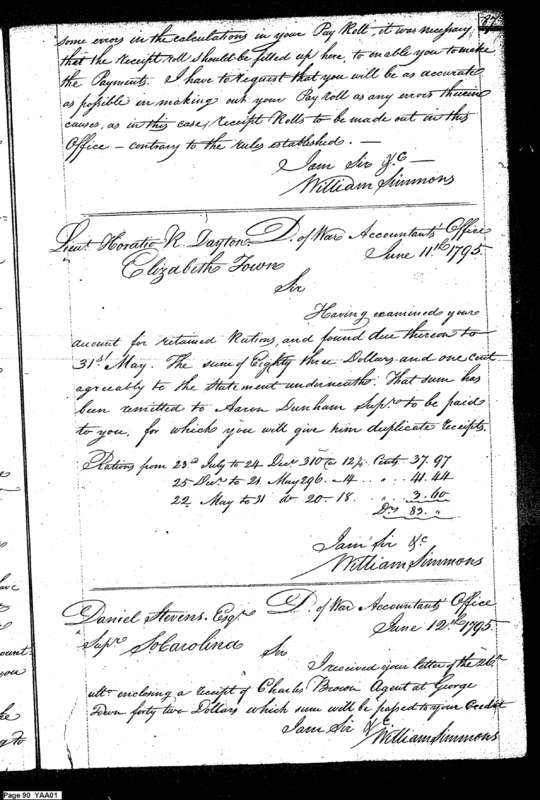 87
some errors in the calculations in your Pay Roll, it was necessary
that the receipt roll should be filled up here, to enable you to make
the Payments. I have to request that you will be as accurate
as possible in making out your Pay Roll as any errors therein
causes, as in this case, receipt Rolls to be made out in this
Office – contrary to the rules established. –
I am Sir &c –
William Simmons
Lieut. Horatio R. Dayton. D. of War Accountants Office
Elizabeth Town June 11th 1795.
Sir
Having examined your
account for retained Rations, and found due thereon to
31st May. The sum of Eighty three Dollars and one cent
agreeably to the Statement underneath. That sum has
been remitted to Aaron Dunham Supr. to be paid
to you, for which you will give him duplicate receipts.
Rations from 23d July to 24 Decr. 310 @ 12¼ Cents 37.97
25 Decr. to 21 May 296 – 14 " 41.44
22 May to 31 do 20 – 18 " 3.60
Drs 83. "
I am Sir &c
William Simmons
Daniel Stevens. Esqr. D. of War Accountants Office
Supr. So Carolina June 12th 1795
Sir
I received your letter of the 26th
ulto. enclosing a receipt of Charles Brown Agent at George
Town forty two Dollars which sum will be passed to your Credit
I am Sir &c
William Simmons
have
ount
you
he
g to
Page 90 YAA01